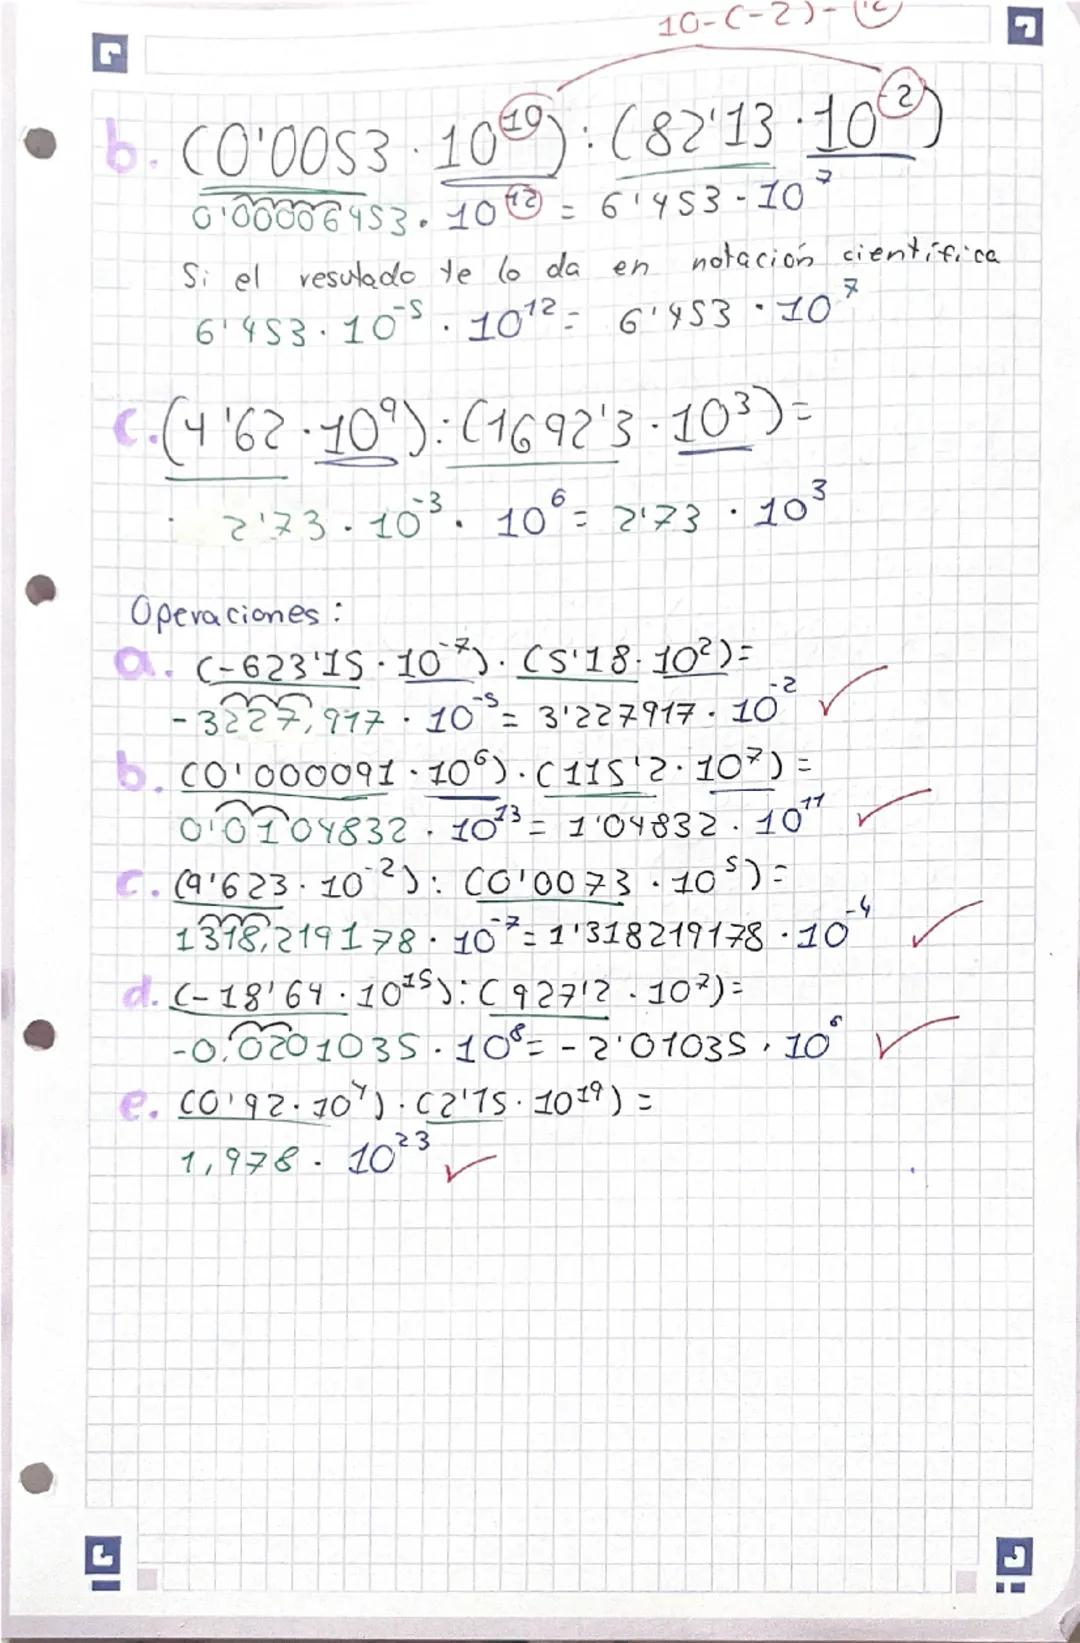 10-(-2)=12
b. (0'0053 · 10¹⁰) : (82'13 · 10⁻²)
0'00006453 · 10¹² = 6'453 · 10⁷
Si el resulado te lo da en notación científica
6'453 · 10⁻⁵ · 10¹² = 6'453 · 10⁷
c. (4'62 · 10⁹) : (1692'3 · 10³) =
2'73 · 10⁻³ · 10⁶ = 2'73 · 10³
Operaciones :
a. (-623'15 · 10⁻⁷) · (5'18 · 10²) =
-3227,917 · 10⁻⁵ = 3'227917 · 10⁻²
b. (0'000091 · 10⁶) · (115'2 · 10⁷) =
0'0104832 · 10¹³ = 1'04832 · 10¹¹
c. (9'623 · 10⁻²) : (0'0073 · 10⁵) =
1318,219178 · 10⁻⁷ = 1'318219178 · 10⁻⁴
d. (-18'64 · 10¹⁵) : (927'2 · 10⁷) =
-0,0201035 · 10⁸ = -2'01035 · 10⁶
e. (0'92 · 10⁴) · (2'15 · 10¹⁹) =
1,978 · 10²³